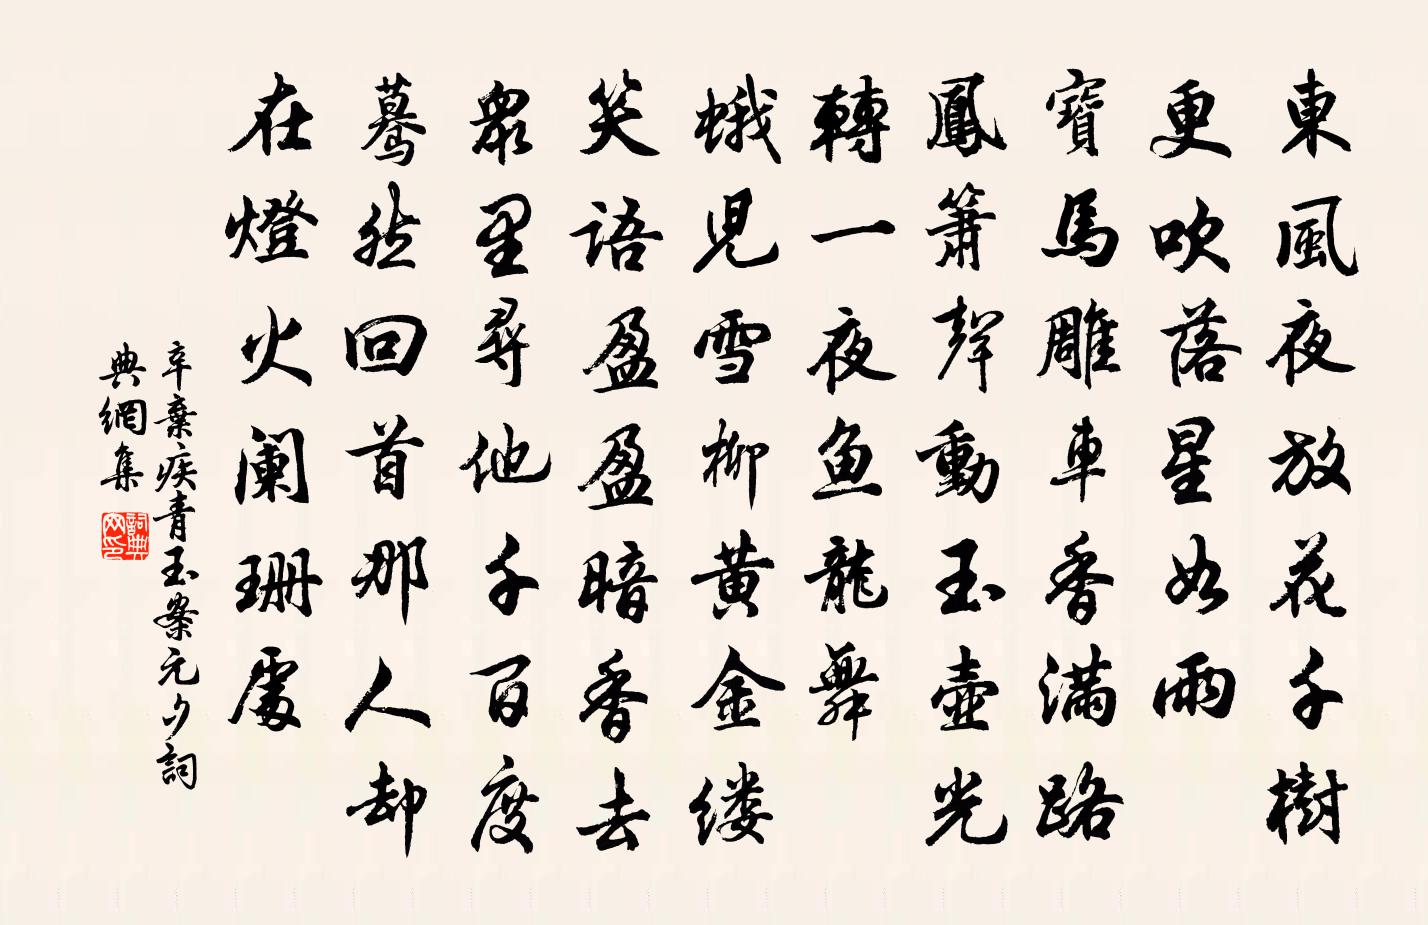 東風夜放花千樹
更吹落星如雨
寶馬雕車香滿路
鳳簫聲動玉壺光
轉一夜魚龍舞
蛾兒雪柳黃金缕
笑語盈盈暗香去
眾里尋他千百度
驀然回首那人却
在燈火阑珊處
辛棄疾青玉案元夕詞
典網集
詞典
网